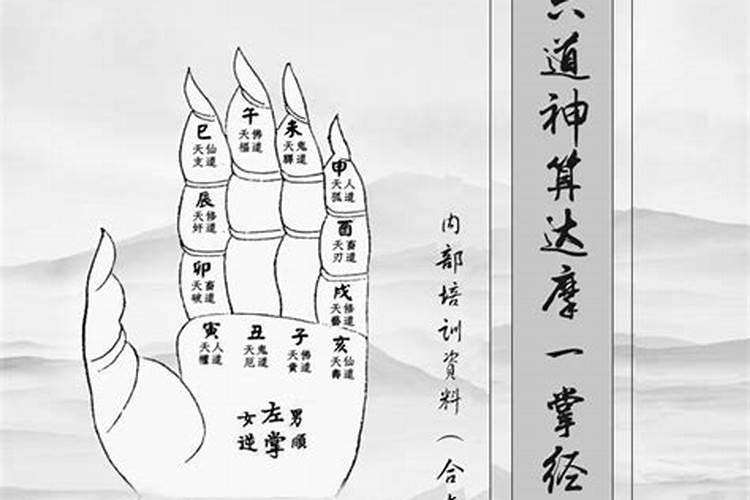 六道神算达摩一掌经
内部培训資料（合
午
天福 佛道
巳
天文 仙道
未
天驛 鬼道
申
天孤 人道
辰
天奸 修道
酉
天刃 畜道
卯
天破 畜道
戌
天藝 修道
寅
天權 人道
丑
天厄 鬼道
子
天貴 佛道
亥
天壽 仙道
女逆
左掌
男順